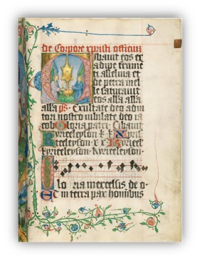 de Corpore xpristi officiū
Cibauit eos ex
adipe frumē
ti alleluia et
de petra mel
le saturauit
eos alla alla
alla ps Exultate deo adiu
tori nostro iubilate deo ia
cob Gloria patri Cibauit
Kyrieeleyson Kyrieeleyson
Kyrieeleyson
Kyrieeleyson Kyrieeleyson
lo ria in excelsis de o
Et in terra pax hominibus